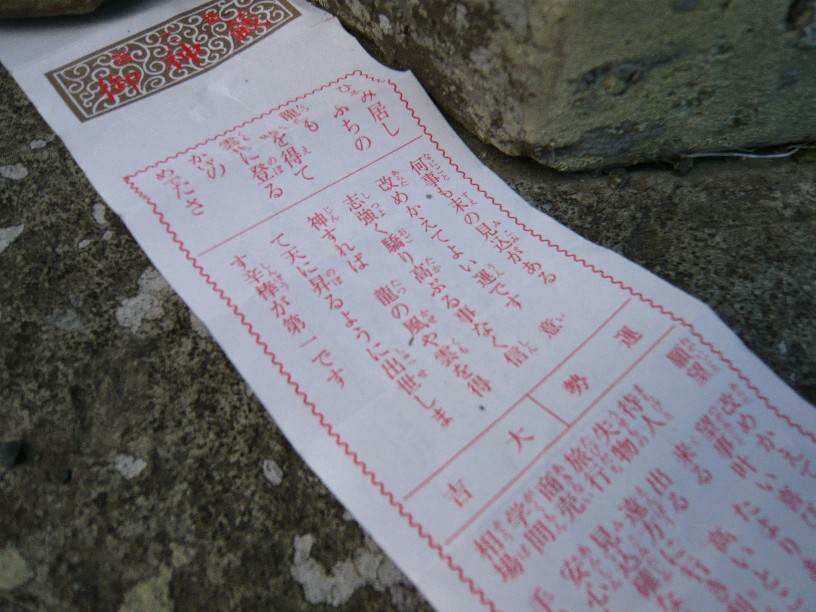 御神籤
み居し
ふちの
龍も
を得て
に登る
かの
めださ
何事も末の見込がある
改めかえてよい運です 意
志強く驕り高ぶる事なく信
神すれば 龍の風や雲を得
て天に昇るように出世しま
す 辛棒が第一です
運勢 大吉
願望 改めかえて
望事叶い
待人 来る たより
失物 出る 高いとこ
旅行 遠方に行
商売 見込確
学問 安心
相場 手